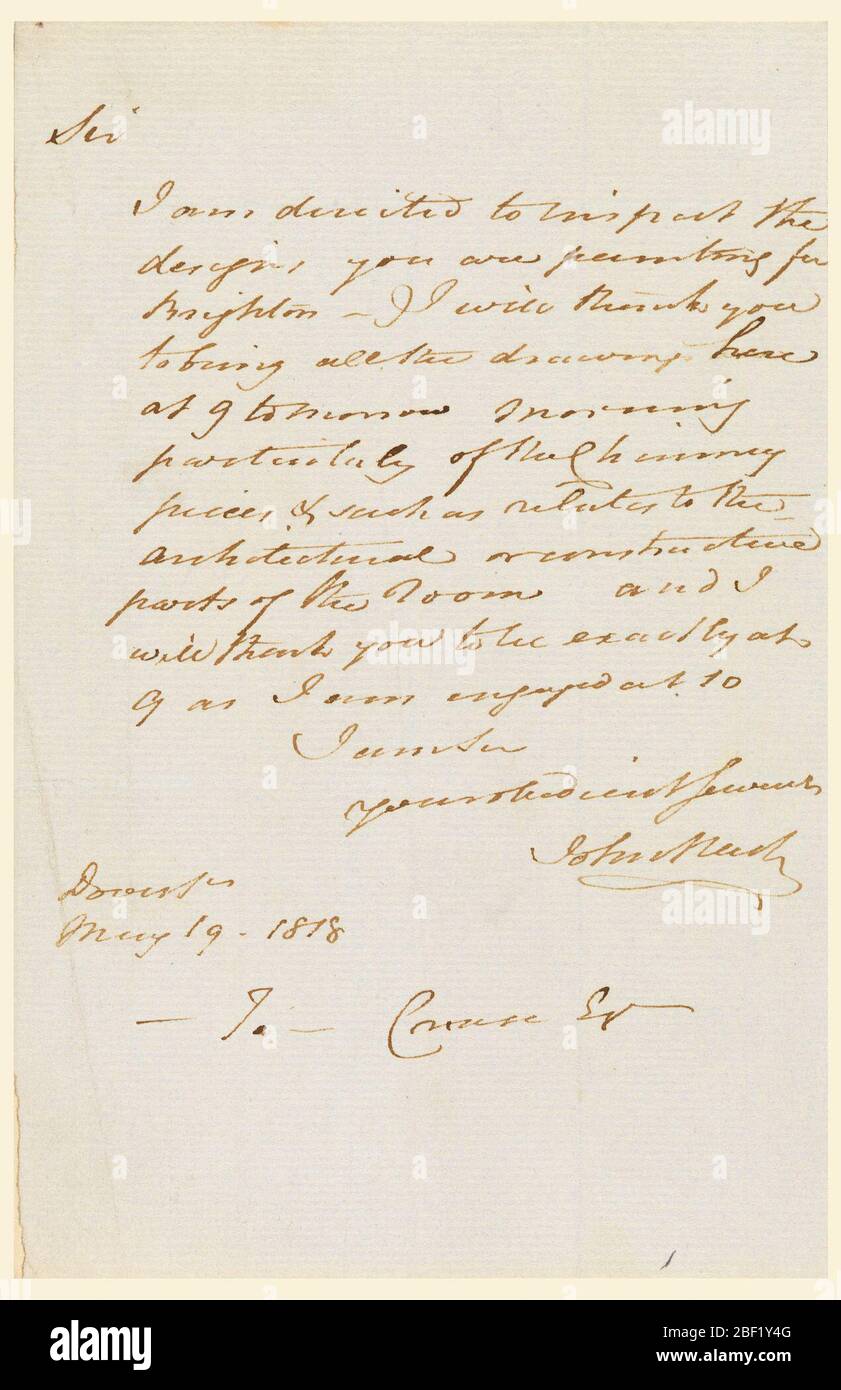 Sir
I am directed to inspect the
designs you are painting for
Brighton – I will thank you
to bring all the drawings here
at 9 tomorrow morning
particularly of the Chimney
pieces & such as relates to the
architectural or constructive
parts of the Room and I
will thank you to be exactly at
9 as I am engaged at 10
I am Sir
your obedient Servant
John Nash
Dover St
May 19 - 1818
— To — Crace Esq
alamy
alamy
Image ID: 2BF1Y4G
www.alamy.com